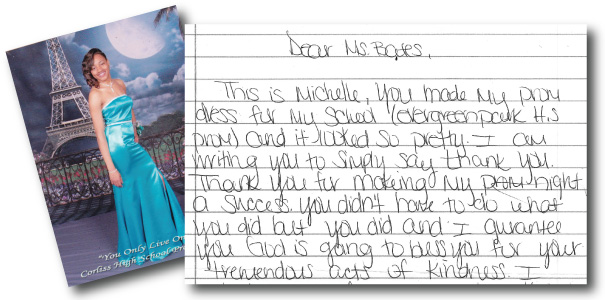 "You Only Live On
Corliss High School-Pr
Dear Ms. Bates,
This is Michelle, you made my prom
dress for my school (evergreenpark H.S
prom) and it looked so pretty. I am
writing you to simply say thank you.
Thank you for making my prom night
a success. you didn't have to do what
you did but you did and I gurantee
you God is going to bless you for your
tremendous acts of kindness. I